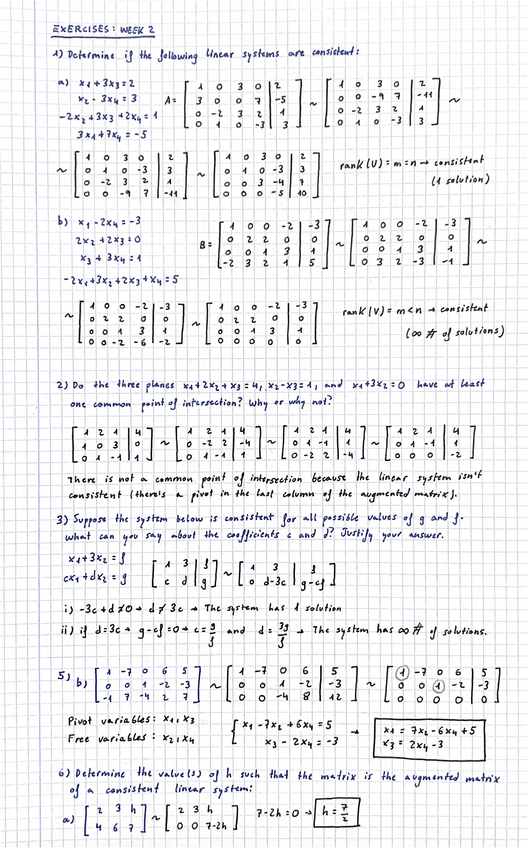 EXERCISES: WEEK 2
1) Determine if the following linear systems are consistent:
a) x1 + 3x3 = 2
x2 - 3x4 = 3
-2x2 + 3x3 + 2x4 = 1
3x1 + 7x4 = -5
A = [ 1 0 3 0 | 2
3 0 0 7 | -5
0 -2 3 2 | 1
0 1 0 -3 | 3 ] ~
[ 1 0 3 0 | 2
0 0 -9 7 | -11
0 -2 3 2 | 1
0 1 0 -3 | 3 ] ~
~ [ 1 0 3 0 | 2
0 1 0 -3 | 3
0 -2 3 2 | 1
0 0 -9 7 | -11 ] ~
[ 1 0 3 0 | 2
0 1 0 -3 | 3
0 0 3 -4 | 7
0 0 0 -5 | 10 ]
rank(U) = m = n → consistent
(1 solution)
b) x1 - 2x4 = -3
2x2 + 2x3 = 0
x3 + 3x4 = 1
-2x1 + 3x2 + 2x3 + x4 = 5
B = [ 1 0 0 -2 | -3
0 2 2 0 | 0
0 0 1 3 | 1
-2 3 2 1 | 5 ] ~
[ 1 0 0 -2 | -3
0 2 2 0 | 0
0 0 1 3 | 1
0 3 2 -3 | -1 ] ~
~ [ 1 0 0 -2 | -3
0 2 2 0 | 0
0 0 1 3 | 1
0 0 -2 -6 | -2 ] ~
[ 1 0 0 -2 | -3
0 2 2 0 | 0
0 0 1 3 | 1
0 0 0 0 | 0 ]
rank(V) = m < n → consistent
(∞ # of solutions)
2) Do the three planes x1 + 2x2 + x3 = 4, x2 - x3 = 1, and x1 + 3x2 = 0 have at least
one common point of intersection? Why or why not?
[ 1 2 1 | 4
1 0 3 | 0
0 1 -1 | 1 ] ~
[ 1 2 1 | 4
0 -2 2 | -4
0 1 -1 | 1 ] ~
[ 1 2 1 | 4
0 1 -1 | 1
0 -2 2 | -4 ] ~
[ 1 2 1 | 4
0 1 -1 | 1
0 0 0 | -2 ]
There is not a common point of intersection because the linear system isn't
consistent (there's a pivot in the last column of the augmented matrix).
3) Suppose the system below is consistent for all possible values of g and f.
What can you say about the coefficients c and d? Justify your answer.
x1 + 3x2 = f
cx1 + dx2 = g
[ 1 3 | f
c d | g ] ~
[ 1 3 | f
0 d-3c | g-cf ]
i) -3c + d ≠ 0 → d ≠ 3c → The system has 1 solution
ii) if d = 3c → g - cf = 0 → c = g/f and d = 3g/f → The system has ∞ # of solutions.
5) b) [ 1 -7 0 6 5
0 0 1 -2 -3
-1 7 -4 2 7 ] ~
[ 1 -7 0 6 | 5
0 0 1 -2 | -3
0 0 -4 8 | 12 ] ~
[ 1 -7 0 6 | 5
0 0 1 -2 | -3
0 0 0 0 | 0 ]
Pivot variables: x1, x3
Free variables: x2, x4
{ x1 - 7x2 + 6x4 = 5
x3 - 2x4 = -3 →
x1 = 7x2 - 6x4 + 5
x3 = 2x4 - 3
6) Determine the value(s) of h such that the matrix is the augmented matrix
of a consistent linear system:
a) [ 2 3 h
4 6 7 ] ~
[ 2 3 h
0 0 7-2h ]
7 - 2h = 0 → h = 7/2